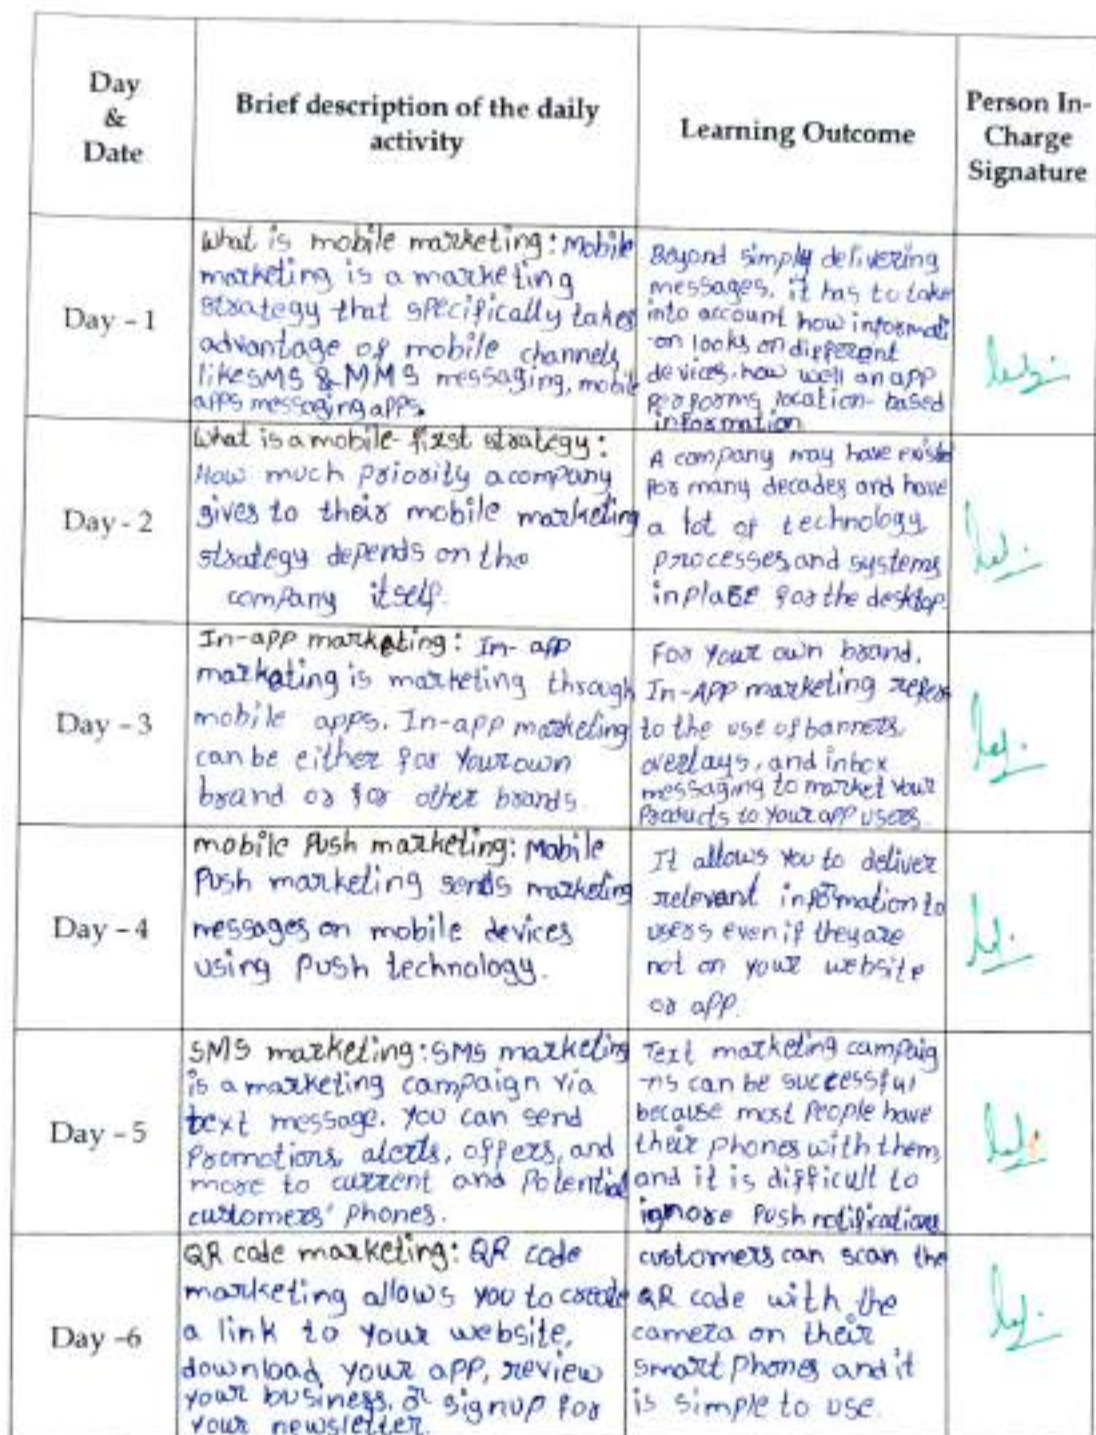 Day
&
Date
Brief description of the daily
activity
Learning Outcome
Person In-
Charge
Signature
Day - 1
What is mobile marketing: Mobile
marketing is a marketing
strategy that specifically takes
advantage of mobile channels
like SMS & MMS messaging, mobile
apps messaging apps.
Beyond simply delivering
messages, it has to take
into account how informati
-on looks on different
devices, how well an app
performs, location-based
information
Day - 2
What is a mobile-first strategy:
How much priority a company
gives to their mobile marketing
strategy depends on the
company itself.
A company may have existe
for many decades and have
a lot of technology,
processes, and systems
in place for the desktop.
Day - 3
In-app marketing: In-app
marketing is marketing through
mobile apps. In-app marketing
can be either for your own
brand or for other brands.
For your own brand,
In-App marketing refers
to the use of banners,
overlays, and inbox
messaging to market your
Products to your app users.
Day - 4
mobile Push marketing: Mobile
Push marketing sends marketing
messages on mobile devices
using Push technology.
It allows you to deliver
relevant information to
users even if they are
not on your website
or app.
Day - 5
SMS marketing: SMS marketing
is a marketing campaign via
text message. You can send
Promotions, alerts, offers, and
more to current and Potential
customers' Phones.
Text marketing campaig
-ns can be successful
because most People have
their phones with them,
and it is difficult to
ignore Push notifications
Day -6
QR code marketing: QR code
marketing allows you to create
a link to your website,
download your app, review
your business, or signup for
your newsletter.
customers can scan the
QR code with the
camera on their
smart phones and it
is simple to use.